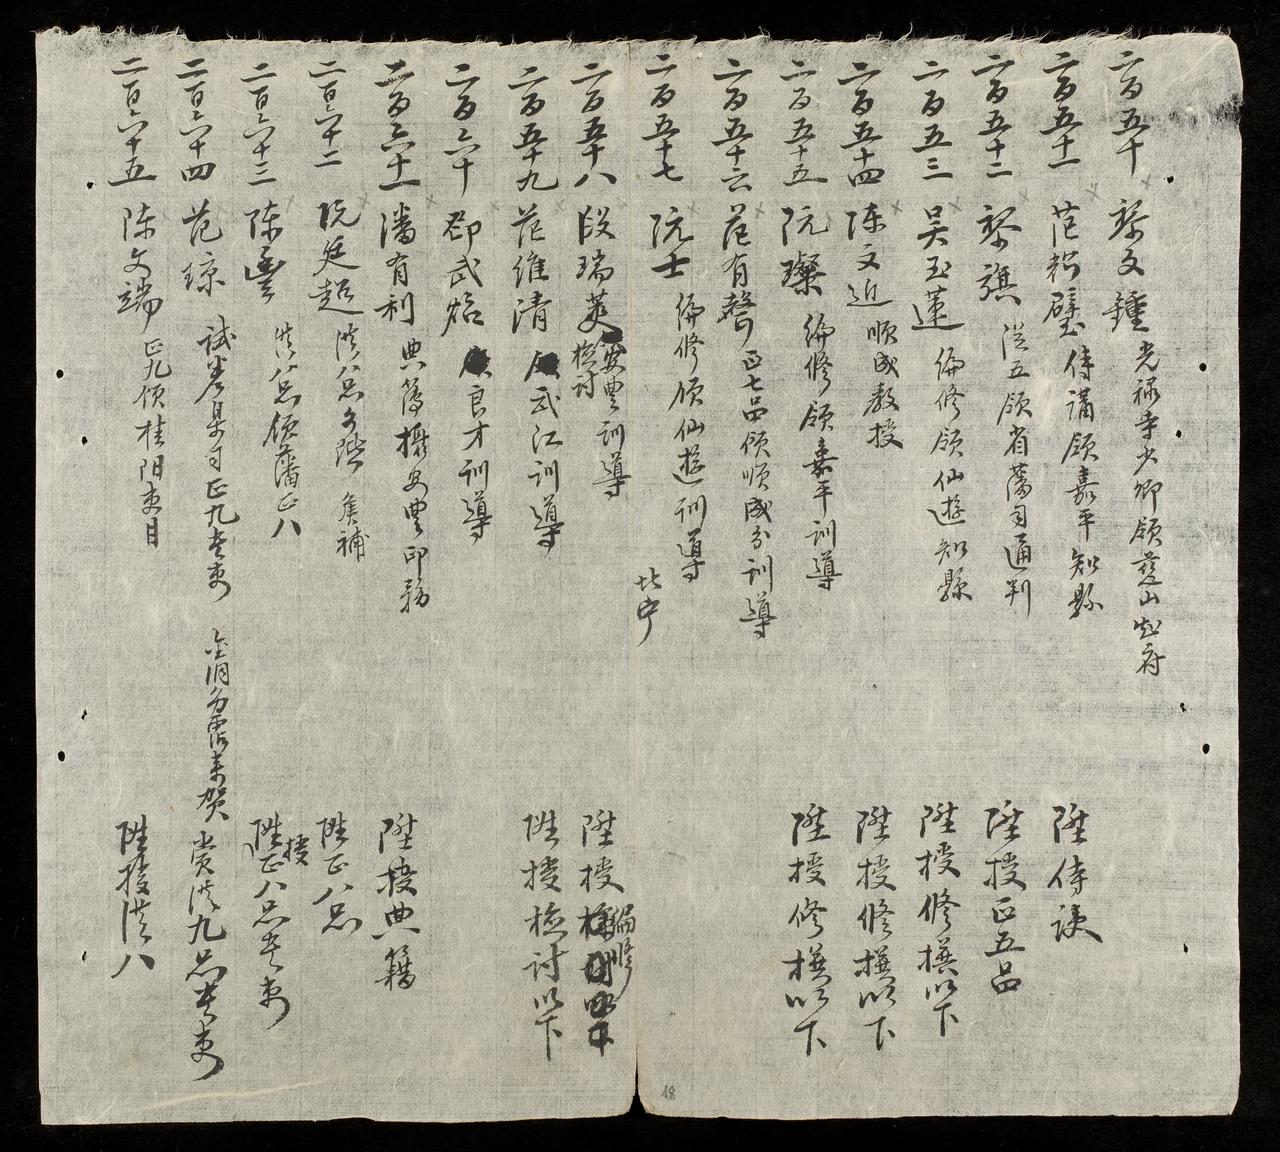 二百五十 黎文鍾 光祿寺少卿領慈山知府
二百五十一 范輅璧 侍講領嘉平知縣 陞侍讀
二百五十二 黎旗 從五領省藩司通判 陞授正五品
二百五三 吳玉蓮 編修領仙遊知縣 陞授修撰以下
二百五十四 陳文近 順成教授 陞授修撰以下
二百五十五 阮璨 編修領嘉平訓導 陞授修撰以下
二百五十六 范有聲 正七品領順成分訓導
二百五十七 阮士 編修領仙遊訓導
北宁
二百五十八 段瑞 安豐訓導 檢討 陞授 編修
二百五十九 范維清 武江訓導 陞授檢討以下
二百六十 郡武 良才訓導
二百六十一 潘有利 典簿攝安豐印務 陞授典籍
二百六十二 阮廷超 從八品文階 候補 陞正八品
二百六十三 陳豐 從八品領藩正八 陞授正八品書吏
二百六十四 范琼 試差臬司正九書吏 來賀 賞從九品書吏
二百六十五 陳文端 正九領桂陽吏目 陞授從八
18